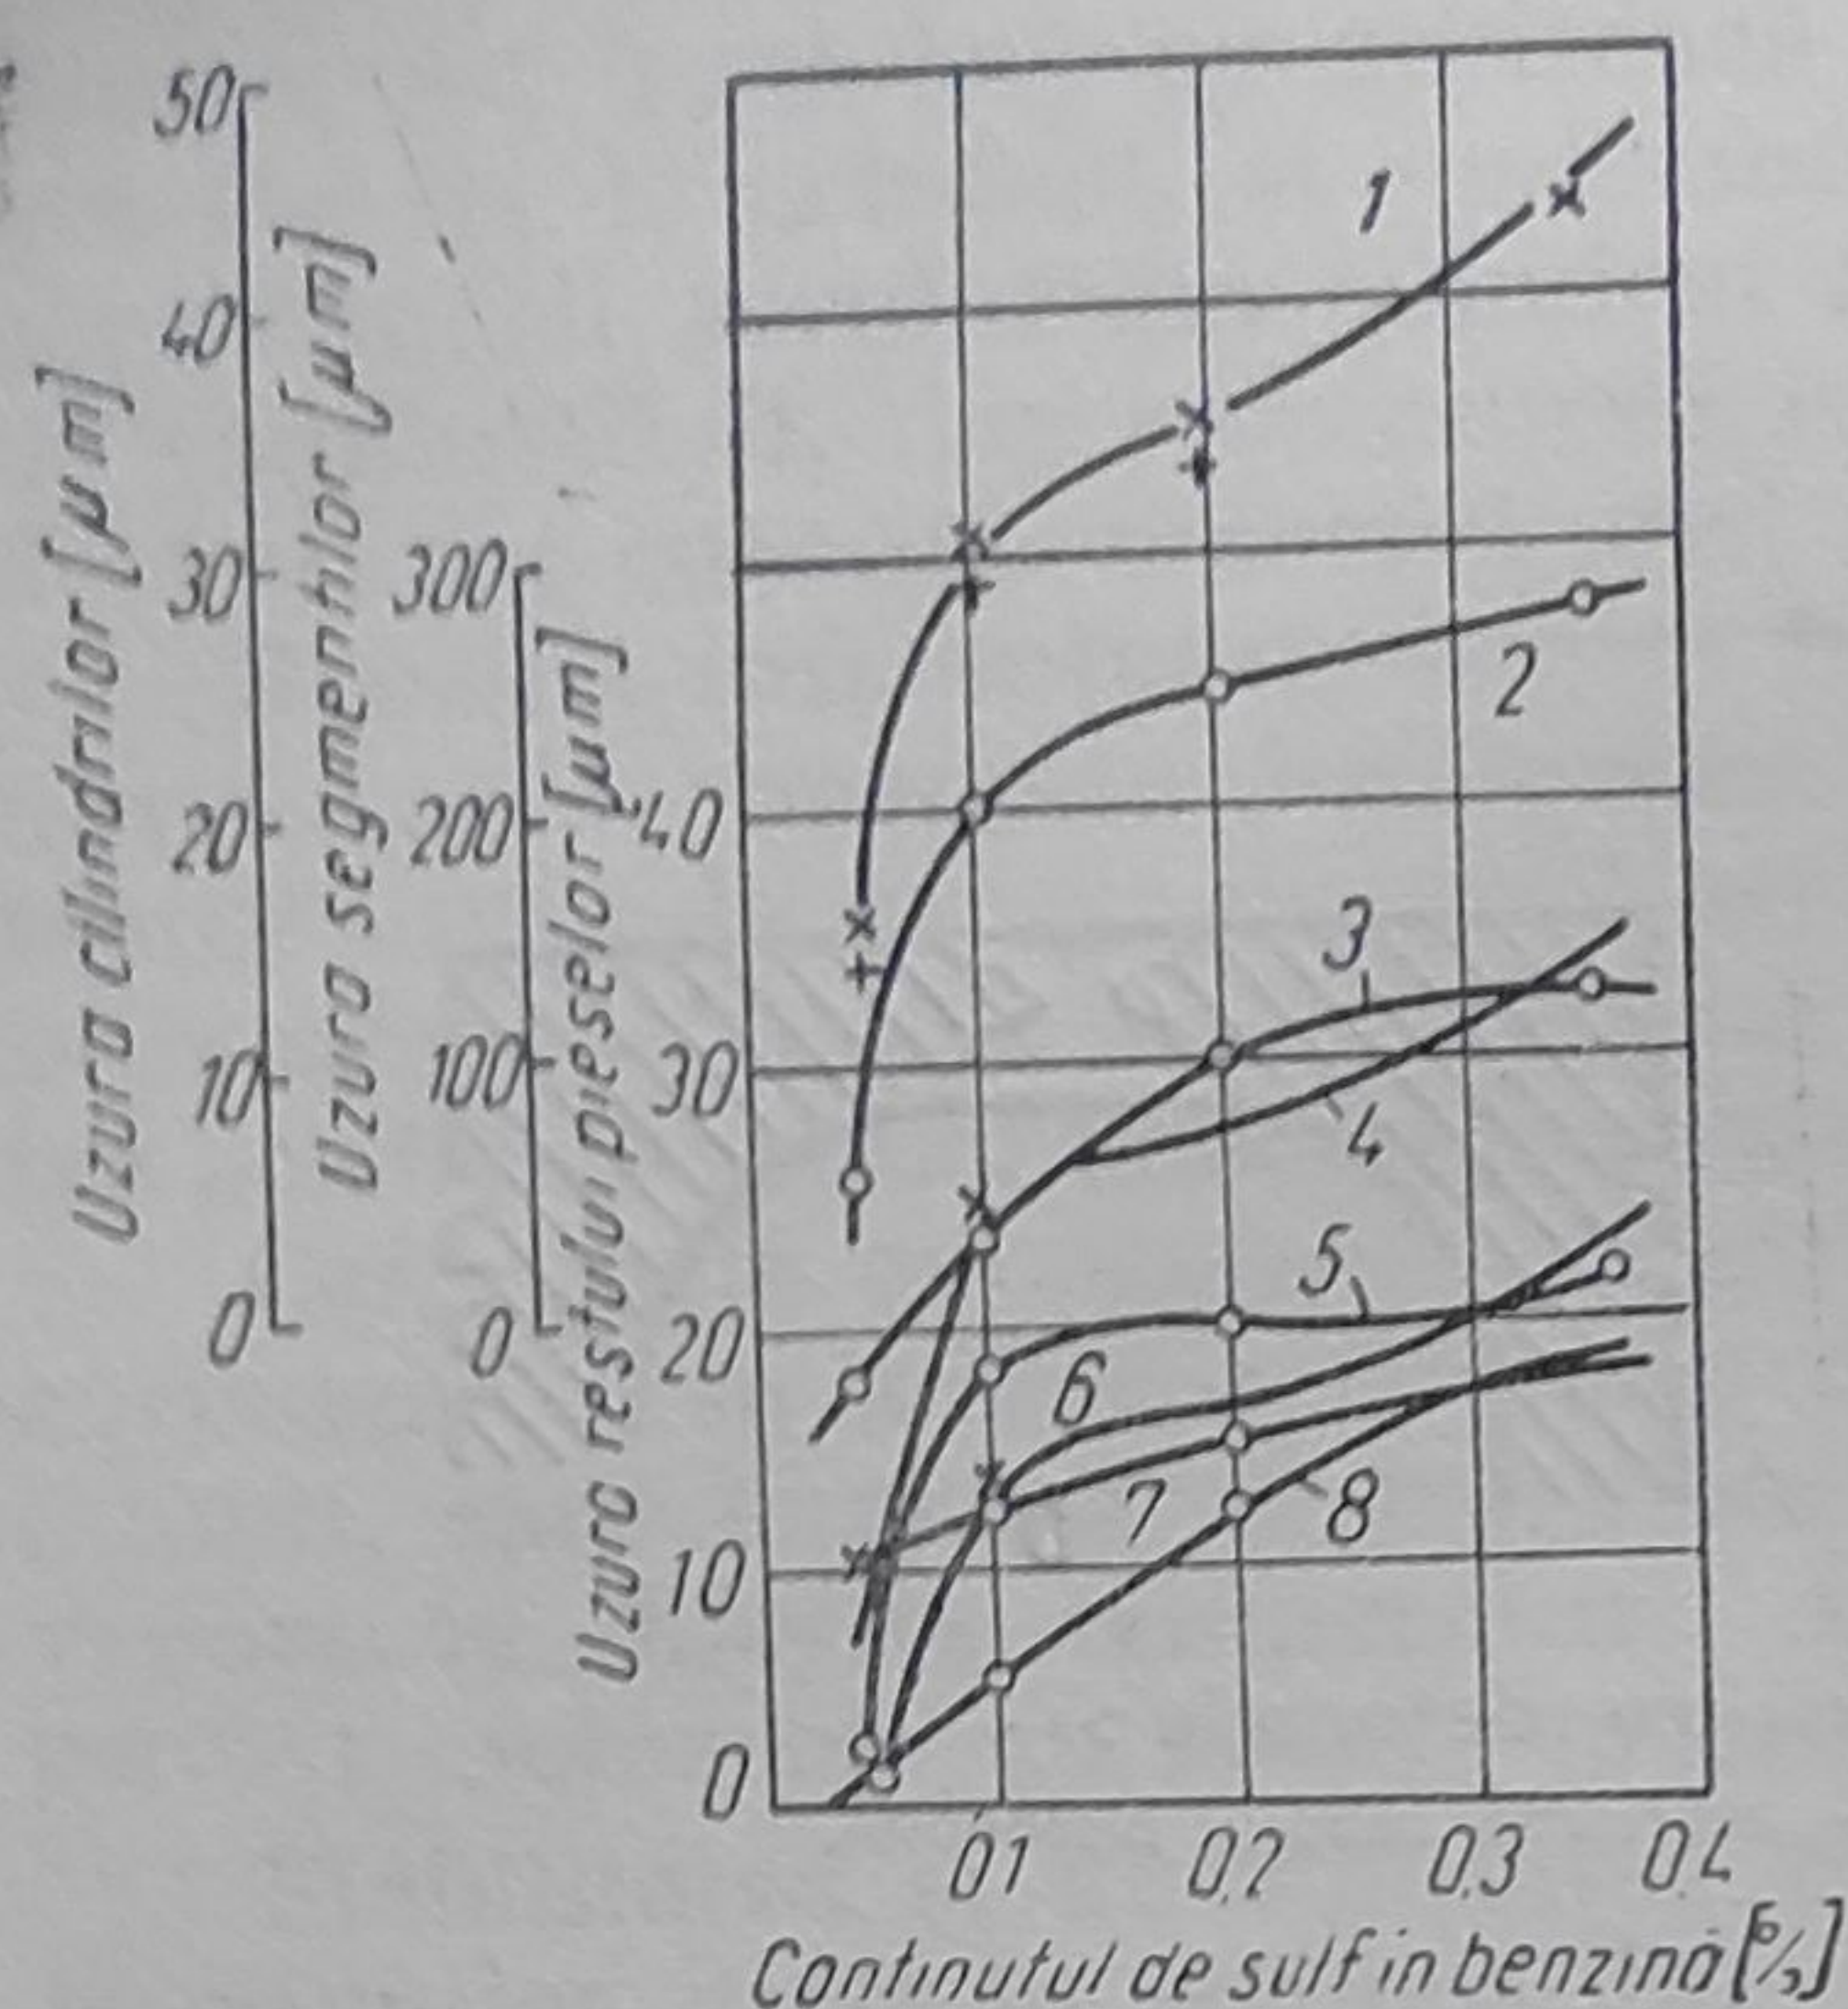 Uzura cilindrilor [μm]
50
40
30
20
10
0
Uzura segmentilor [μm]
300
200
100
0
Uzura restului pieselor [μm]
40
30
20
10
0
1
2
3
4
5
6
7
8
0.1 0.2 0.3 0.4
Continutul de sulf in benzină [%]